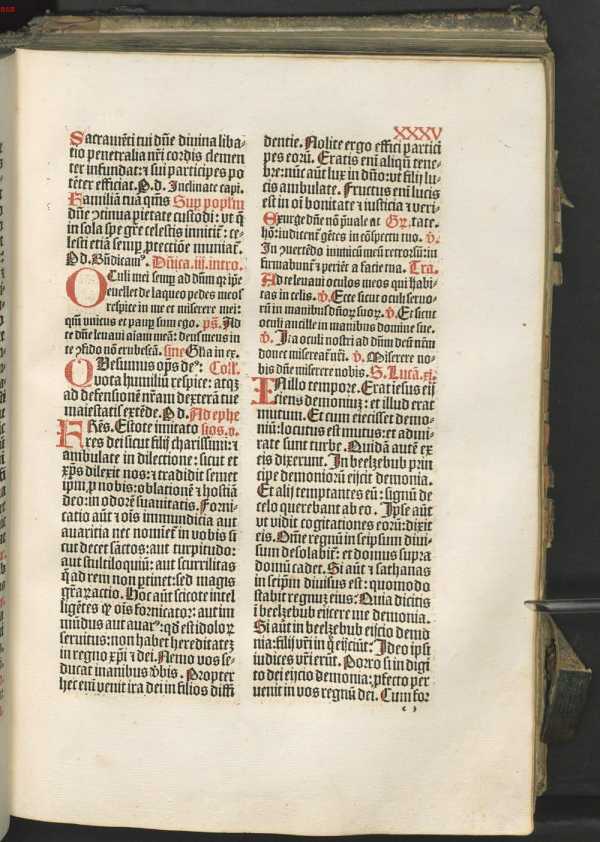 XXXV
Sacramēti tui dñe diuina liba⸗
tio penetralia nr̄i cordis clemen
ter infundat: ⁊ sui participes po
tēter efficiat. P.d. Inclinate capi.
Familiā tuā q̄ms Suꝑ popl̄m
dñe ꝯtinua pietate custodi: vt q̄
in sola spe gr̄e celestis innitit̄: ce⸗
lesti etiā semꝑ ꝓtectiōe muniat̄.
Pd. Bn̄dicam⁹. Dn̄ica.iii.intro.
OCuli mei semꝑ ad dñm qꝛ ip̄e
euellet de laqueo pedes meos
respice in me et miserere mei:
qm̄ vnicus et pauꝑ sum ego. ps̄. Ad
te dñe leuaui aīam meā: deus meus in
te ꝯfido nō erubescā. sine Gl̄ia in ex.
QVesumus op̄s de⁹: Coll̄.
vota humiliū respice: atqꝫ
ad defensionē nr̄am dexterā tue
maiestatis extēde. P.d. Ad ephe
FRēs. Estote imitato sios.v.
res dei sicut filij charissimi: ⁊
ambulate in dilectione: sicut et
xp̄s dilexit nos: ⁊ tradidit semet
ip̄m ꝓ nobis: oblationē ⁊ hostiā
deo: in odorē suauitatis. Forni⸗
catio aūt ⁊ oīs immundicia aut
auaritia nec nomiēt̄ in vobis si
cut decet sāctos: aut turpitudo:
aut stultiloquiū: aut scurrilitas
q̄ ad rem non ꝑtinet: sed magis
gr̄aꝝ actio. Hoc aūt scitote intel
ligētes qꝫ oīs fornicator: aut im
mūdus aut auar⁹: qd̄ est idoloꝝ
seruitus: non habet hereditatez
in regno xp̄i ⁊ dei. Nemo vos se⸗
ducat inanibus v̄bis. Propter
hec enī venit ira dei in filios diffi
dentie. Nolite ergo effici partici
pes eorū. Eratis enī aliqū tene⸗
bre: nūc aūt lux in dño: vt filij lu
cis ambulate. Fructus enī lucis
est in oī bonitate ⁊ iusticia ⁊ veri⸗
Exurge dñe nō p̄ualeat Gꝝ. tate.
hō: iudicent̄ gētes in cōspectu tuo. v̄.
In ꝯuertēdo inimicū meū retrorsū: in
firmabunt̄ ⁊ periēt a facie tua. Tra.
Ad te leuaui oculos meos qui habi⸗
tas in celis. v̄. Ecce sicut oculi seruo⸗
rū in manibus dñoꝝ suoꝝ. v̄. Et sicut
oculi ancille in manibus domine sue.
v̄. Ita oculi nostri ad dñm deū nr̄m
donec misereat̄ nr̄i. v̄. Miserere no⸗
bis dñe miserere nobis. S. Lucā.xi.
IN illo tempore. Erat iesus eij
ciens demoniuꝫ: et illud erat
mutum. Et cum eiecisset demo⸗
niū: locutus est mutus: et admi⸗
rate sunt turbe. Quidā autē ex
eis dixerunt. In beelzebub prin
cipe demoniorū eijcit demonia.
Et alij temptantes eū: signū de
celo querebant ab eo. Ipse aūt
vt vidit cogitationes eorū: dixit
eis. Om̄e regnū in seipsum diui⸗
sum desolabit̄: et domus supra
domū cadet. Si aūt ⁊ sathanas
in seip̄m diuisus est: quomodo
stabit regnuꝫ eius: Quia dicitis
ī beelzebub eijcere me demonia.
Si aūt in beelzebub eijcio demo
nia: filij vr̄i in q̄ eijciūt: Ideo ip̄i
iudices vr̄i erūt. Porro si in digi
to dei eijcio demonia: ꝓfecto per
uenit in vos regnū dei. Cum for